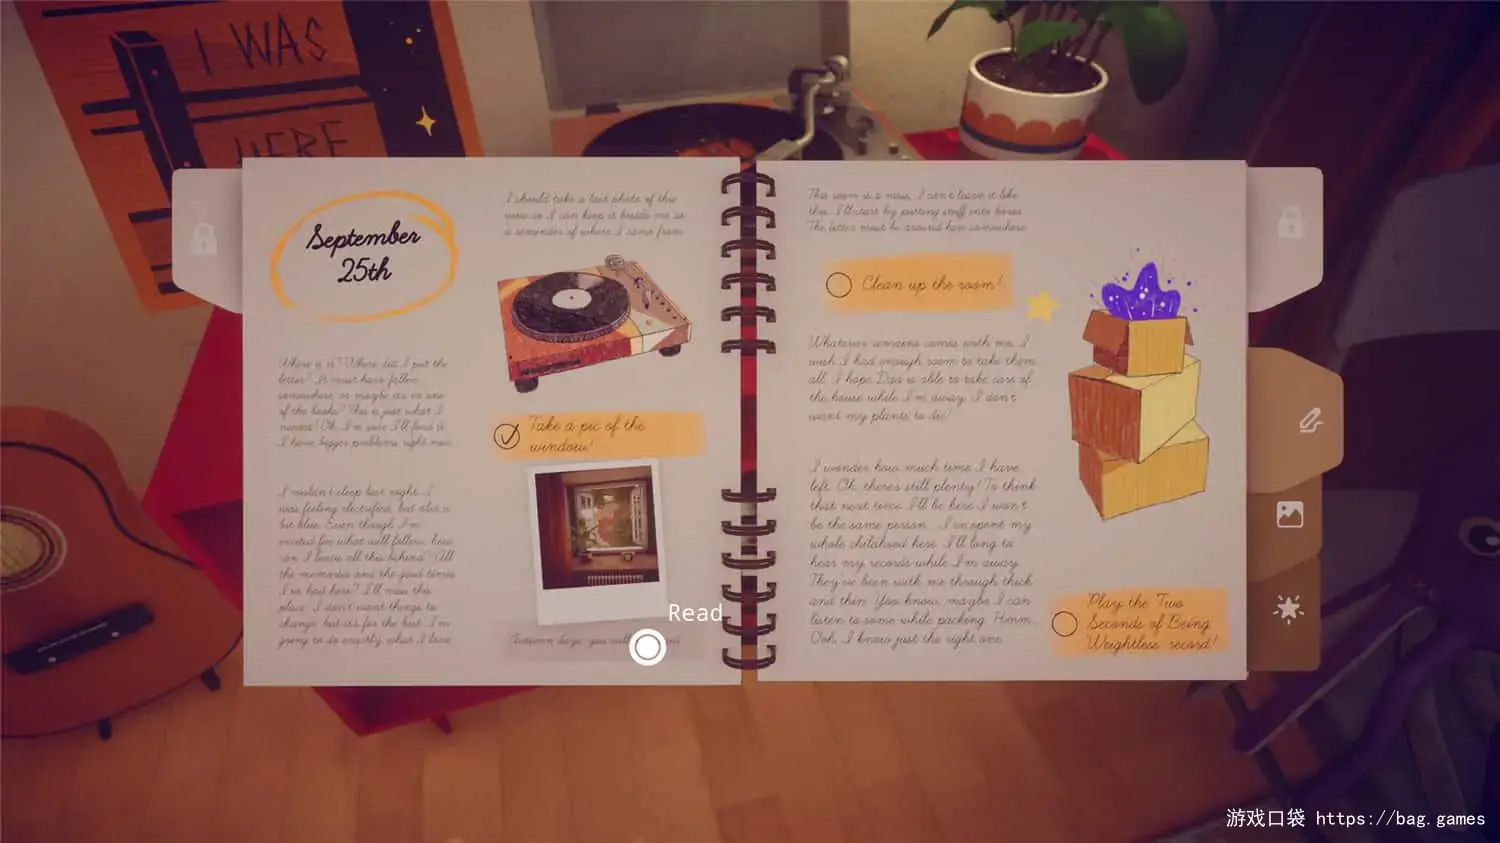 I WAS
HERE
September
25th
Where is it? Where did I put the
letter? It must have fallen
somewhere or maybe it's in one
of the books? This is just what I
needed! Oh, I'm sure I'll find it.
I have bigger problems right now.
I couldn't sleep last night. I
was feeling electrified, but also a
bit blue. Even though I'm
excited for what will follow, how
can I leave all this behind? All
the memories and the good times
I've had here? I'll miss this
place. I don't want things to
change, but it's for the best. I'm
going to do exactly what I love
I should take a last photo of this
view so I can keep it beside me as
a reminder of where I came from
Take a pic of the
window!
Autumn days, you will
Read
This room is a mess, I can't leave it like
this. I'll start by putting stuff into boxes.
The letter must be around here somewhere
Clean up the room!
Whatever remains comes with me. I
wish I had enough room to take them
all. I hope Dad is able to take care of
the house while I'm away. I don't
want my plants to die!
I wonder how much time I have
left. Oh, there's still plenty! To think
that next time I'll be here I won't
be the same person... I've spent my
whole childhood here. I'll long to
hear my records while I'm away.
They've been with me through thick
and thin. You know, maybe I can
listen to some while packing. Hmm...
Ooh, I know just the right one.
Play the Two
Seconds of Being
Weightless record!
游戏口袋 https://bag.games